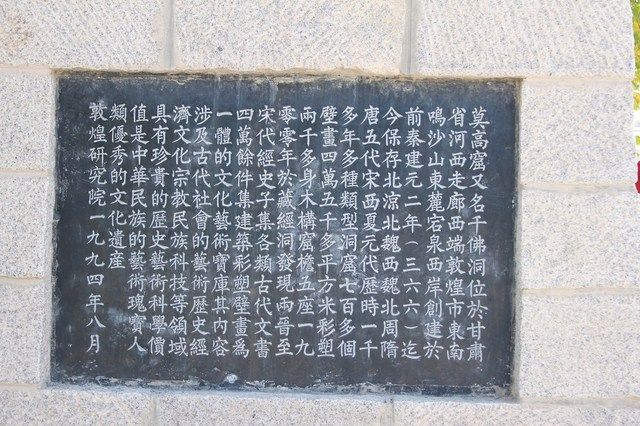 莫高窟又名千佛洞位於甘肅
省河西走廊西端敦煌市東南
鳴沙山東麓宕泉西岸創建於
前秦建元二年（三六六）迄
今保存北涼北魏西魏北周隋
唐五代宋西夏元代歷時一千
多年多種類型洞窟七百多個
壁畫四萬五千多平方米彩塑
兩千多身木構窟檐五座一九
零零年於藏經洞發現兩晉至
宋代經史子集各類古代文書
四萬餘件集建築彩塑壁畫爲
一體的文化藝術寶庫其內容
涉及古代社會的藝術歷史經
濟文化宗教民族科技等領域
具有珍貴的歷史藝術科學價
值是中華民族的藝術瑰寶人
類優秀的文化遺産
敦煌研究院一九九四年八月